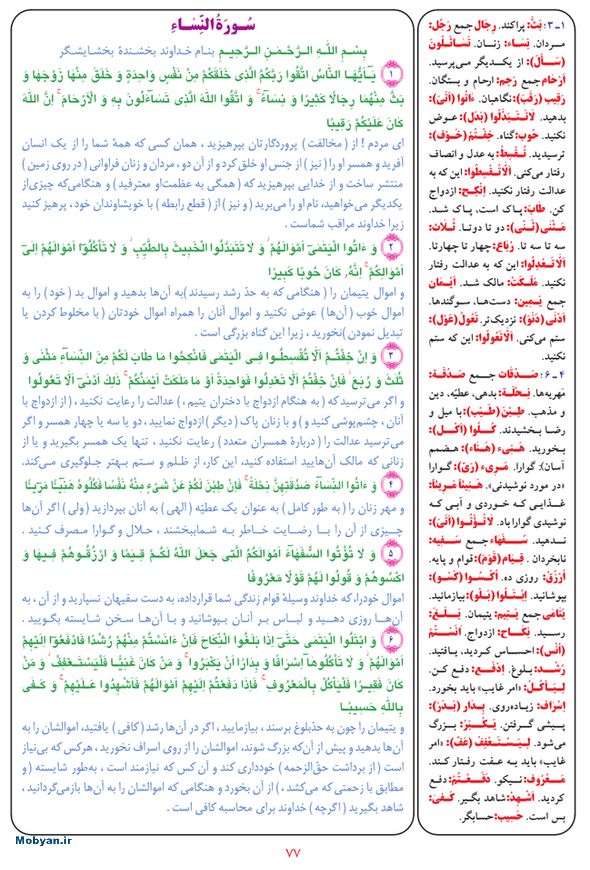 سُورَةُ النِّسَاءِ
بِسْمِ اللَّهِ الرَّحْمَـٰنِ الرَّحِيمِ بنام خداوند بخشندهٔ بخشایشگر
۱ يَـٰٓأَيُّهَا النَّاسُ اتَّقُوا رَبَّكُمُ الَّذِي خَلَقَكُمْ مِنْ نَفْسٍ وَاحِدَةٍ وَ خَلَقَ مِنْهَا زَوْجَهَا وَ
بَثَّ مِنْهُمَا رِجَالًا كَثِيرًا وَ نِسَاءً ۚ وَ اتَّقُوا اللَّهَ الَّذِي تَسَاءَلُونَ بِهِ وَ الْأَرْحَامَ ۚ إِنَّ اللَّهَ
كَانَ عَلَيْكُمْ رَقِيبًا
ای مردم ! از ( مخالفت ) پروردگارتان بپرهیزید ، همان کسی که همهٔ شما را از یک انسان
آفرید و همسر او را ( نیز ) از جنس او خلق کرد و از آن دو ، مردان و زنان فراوانی ( در روی زمین )
منتشر ساخت و از خدایی بپرهیزید که ( همگی به عظمت‌او معترفید ) و هنگامی‌که چیزی‌از
یکدیگر می‌خواهید، نام او را می‌برید ( و نیز ) از ( قطع رابطه ) با خویشاوندان خود ، پرهیز کنید
زیرا خداوند مراقب شماست .
۲ وَ ءَاتُوا الْيَتَـٰمَىٰ أَمْوَالَهُمْ ۖ وَ لَا تَتَبَدَّلُوا الْخَبِيثَ بِالطَّيِّبِ ۖ وَ لَا تَأْكُلُوٓا أَمْوَالَهُمْ إِلَىٰٓ
أَمْوَالِكُمْ ۚ إِنَّهُ كَانَ حُوبًا كَبِيرًا
و اموال یتیمان را ( هنگامی که به حدّ رشد رسیدند )به آن‌ها بدهید و اموال بد ( خود ) را به
اموال خوب ( آن‌ها ) عوض نکنید و اموال آنان را همراه اموال خودتان ( با مخلوط کردن یا
تبدیل نمودن )نخورید ، زیرا این گناه بزرگی است .
۳ وَ إِنْ خِفْتُمْ أَلَّا تُقْسِطُوا فِي الْيَتَـٰمَىٰ فَانْكِحُوا مَا طَابَ لَكُمْ مِنَ النِّسَآءِ مَثْنَىٰ وَ
ثُلَـٰثَ وَ رُبَـٰعَ ۖ فَإِنْ خِفْتُمْ أَلَّا تَعْدِلُوا فَوَاحِدَةً أَوْ مَا مَلَكَتْ أَيْمَـٰنُكُمْ ۚ ذَٰلِكَ أَدْنَىٰٓ أَلَّا تَعُولُوا
و اگر می‌ترسید که ( به هنگام ازدواج با دختران یتیم ، ) عدالت را رعایت نکنید ، ( از ازدواج با
آنان ، چشم‌پوشی کنید و ) و با زنان پاک ( دیگر ) ازدواج نمایید ، دو یا سه یا چهار همسر و اگر
می‌ترسید عدالت را ( دربارهٔ همسران متعدد ) رعایت نکنید ، تنها یک همسر بگیرید و یا از
زنانی که مالک آن‌هایید استفاده کنید، این کار، از ظلم و ستم بهتر جلوگیری می‌کند.
۴ وَ ءَاتُوا النِّسَآءَ صَدُقَـٰتِهِنَّ نِحْلَةً ۚ فَإِنْ طِبْنَ لَكُمْ عَنْ شَيْءٍ مِنْهُ نَفْسًا فَكُلُوهُ هَنِيٓئًا مَرِيٓئًا
و مهر زنان را ( به طور کامل ) به عنوان یک عطیّه ( الهی ) به آنان بپردازید ( ولی ) اگر آن‌ها
چیزی از آن را با رضایت خاطر به شما‌ببخشند ، حلال و گوارا مصرف کنید .
۵ وَ لَا تُؤْتُوا السُّفَهَآءَ أَمْوَالَكُمُ الَّتِي جَعَلَ اللَّهُ لَكُمْ قِيَـٰمًا وَ ارْزُقُوهُمْ فِيهَا وَ
اكْسُوهُمْ وَ قُولُوا لَهُمْ قَوْلًا مَعْرُوفًا
اموال خودرا، که خداوند وسیلهٔ قوام زندگی شما قرارداده، به دست سفیهان نسپارید و از آن ، به
آن‌ها روزی دهید و لباس بر آنان بپوشانید و با آن‌ها سخن شایسته بگویید .
۶ وَ ابْتَلُوا الْيَتَـٰمَىٰ حَتَّىٰٓ إِذَا بَلَغُوا النِّكَاحَ فَإِنْ ءَانَسْتُمْ مِنْهُمْ رُشْدًا فَادْفَعُوٓا إِلَيْهِمْ
أَمْوَالَهُمْ ۖ وَ لَا تَأْكُلُوهَآ إِسْرَافًا وَ بِدَارًا أَنْ يَكْبَرُوا ۚ وَ مَنْ كَانَ غَنِيًّا فَلْيَسْتَعْفِفْ ۖ وَ مَنْ
كَانَ فَقِيرًا فَلْيَأْكُلْ بِالْمَعْرُوفِ ۚ فَإِذَا دَفَعْتُمْ إِلَيْهِمْ أَمْوَالَهُمْ فَأَشْهِدُوا عَلَيْهِمْ ۚ وَ كَفَىٰ
بِاللَّهِ حَسِيبًا
و یتیمان را چون به حدّبلوغ برسند ، بیازمایید، اگر در آن‌ها رشد (کافی ) یافتید، اموالشان را به
آن‌ها بدهید و پیش از آن‌که بزرگ شوند، اموالشان را از روی اسراف نخورید ، هرکس که بی‌نیاز
است ( از برداشت حقّ‌الزحمه ) خودداری کند و آن کس که نیازمند است ، به‌طور شایسته ( و
مطابق با زحمتی که می‌کشد ، ) از آن بخورد و هنگامی که اموالشان را به آن‌ها بازمی‌گردانید ،
شاهد بگیرید ( اگرچه ) خداوند برای محاسبه کافی است .
۱ـ۳: بَثَّ: پراکند. رِجَال جمع رَجُل:
مردان. نِسَاء: زنـان. تَسَائَلُونَ
(سَأَلَ): از یکـدیگر می‌پرسید.
اَرْحَام جمع رَحِم: ارحام و بستگان.
رَقِیب (رَقَبَ): نگاهبان. ءَاتُوا (أَتَیَ):
بدهید. لَاتَتَبَدَّلُوا (بَدَلَ): عـوض
نکنید. حُوب: گناه. خِفْتُمْ (خَوِفَ):
ترسیدید. تُقْسِطُ: به عدل و انصاف
رفتار می‌کنی. اَلَّاتُقْسِطُوا: این که به
عدالت رفتار نکنید. اِنْکِحْ: ازدواج
کن. طَابَ: پاک است، پاک شـد.
مَثْنَیٰ (ثَنَیَ): دو تا دوتا. ثُـلَاثَ:
سه تا سه تا. رُبَاعَ: چهار تا چهارتا.
اَلَّاتَعْدِلُوا: این که به عدالت رفتار
نکنید. مَلَکَتْ: مالک شـد. اَیْمَان
جمع یَمِین: دست‌هـا، سوگندها.
اَدْنَیٰ (دَنَوَ): نزدیک‌تر. تَعُولُ (عَوَلَ):
ستم می‌کنی. اَلَّاتَعُولُوا: این که ستم
نکنید.
۴ـ۶: صَدُقَات جـمـع صَدُقَة:
مَهریه‌ها. نِحْلَة: بدهی، عطیّه، دین
و مذهب. طِبْنَ (طَیَبَ): با میل و
رضا بخشیدند. کُلُوا (أَکَلَ):
بخورید. هَنِیء (هَنَأَ): هـضـم
آسان؛ گوارا. مَریء (رَیَ): گوارا
«در مورد نوشیدنی». هَنِیئاً مَریئاً:
غذایـی که خـوردی و آبی که
نوشیدی گوارا باد. لَاتُؤْتُوا (أَتَیَ):
ندهـیـد. سُـفَـهَاء جمع سَفِیه:
نابخردان . قِـیَام (قَوَمَ): قوام و پایه.
اُرْزُقْ: روزی ده. اُکْسُوا (کَسَوَ):
بپوشانید. اِبْتَلُوا (بَلَوَ): بیازمائید.
یَتَامَیٰ جمع یَتِیم: یتیمان. بَـلَـغَ:
رسـید. نِکَـاح: ازدواج. آنَسْتُمْ
(أَنَسَ): احـساس کـردید، یـافتید.
رُشْـد: بـلـوغ. اِدْفَعْ: دفـع کـن.
لِیَـأْکُـلْ: «امر غایب» باید بخورد.
اِسْرَاف: زیاده‌روی. بِـدَار (بَـدَرَ):
پیشی گـرفتن. یَـکْـبَـرُ: بـزرگ
می‌شود. لِیَـسْـتَـعْـفِفْ (عَفَّ): «امر
غایب» باید به عـفت رفتار کند.
مَعْرُوف: نیـکو. دَفَـعْتُمْ: دفع
کردید. اَشْهِدْ: شاهد بگیر. کَـفَیٰ:
بس است. حَسِیب: حسابگر.
Mobyan.ir
۷۷